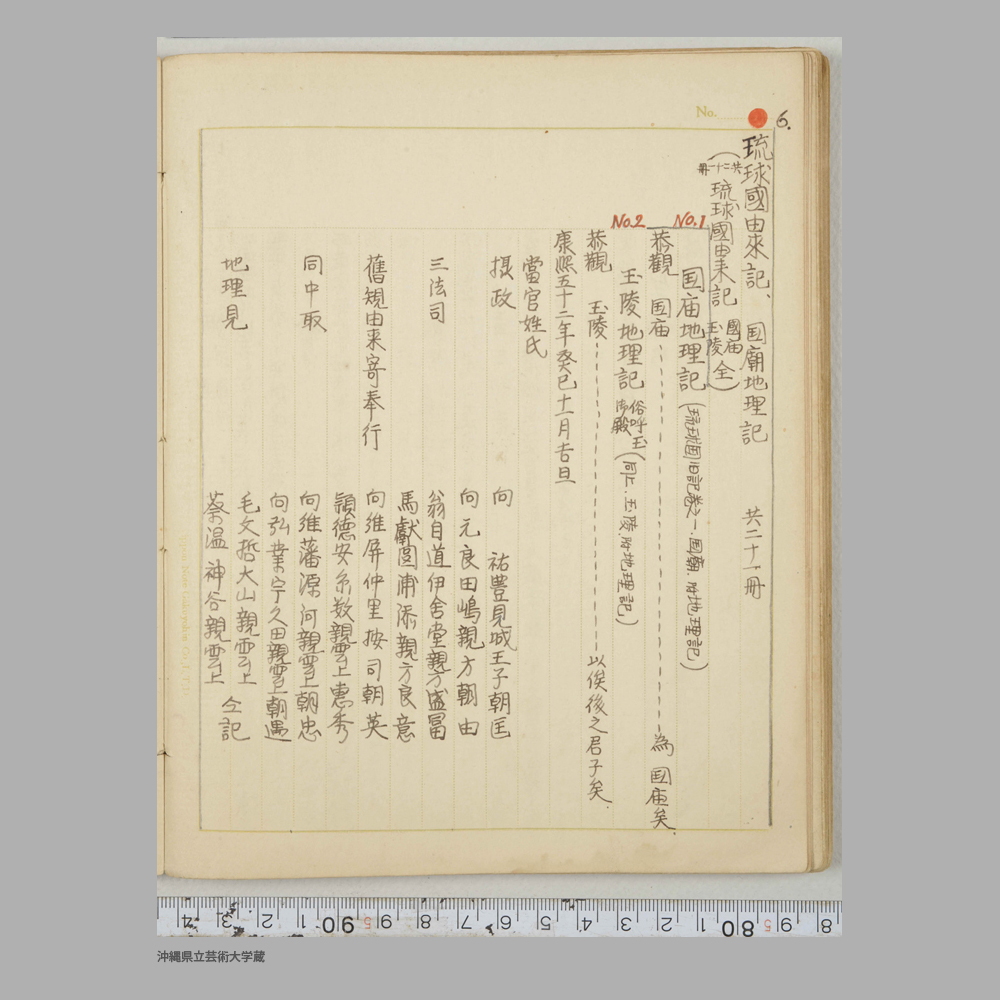 6.
No.
琉球國由来記、国廟地理記 共二十一冊
(共二十一冊 琉球國由来記 國庙玉陵 全)
No.1
国庙地理記 (琉球国旧記巻之一.国廟.附地理記)
恭觀 国庙-----為 国庙矣.
No2
玉陵地理記 俗呼玉御殿 (同上.玉陵.附地理記)
恭觀 玉陵-----以俟後之君子矣.
康熙五十二年癸巳十一月吉旦
當官姓氏
摂政 向 祐豊見城王子朝匡
向元良田嶋親方朝由
三法司 翁自道伊舎堂親方盛冨
馬献圖浦添親方良意
舊規由来寄奉行 向維屏仲里按司朝英
頴德安糸数親雲上惠秀
同中取 向維藩源河親雲上朝忠
向弘業宇久田親雲上朝遇
地理見 毛文哲大山親雲上
蔡温神谷親雲上 仝記
4 3 2 1 90 5 8 7 6 5 4 3 2 1 80 5 8
沖縄県立芸術大学蔵